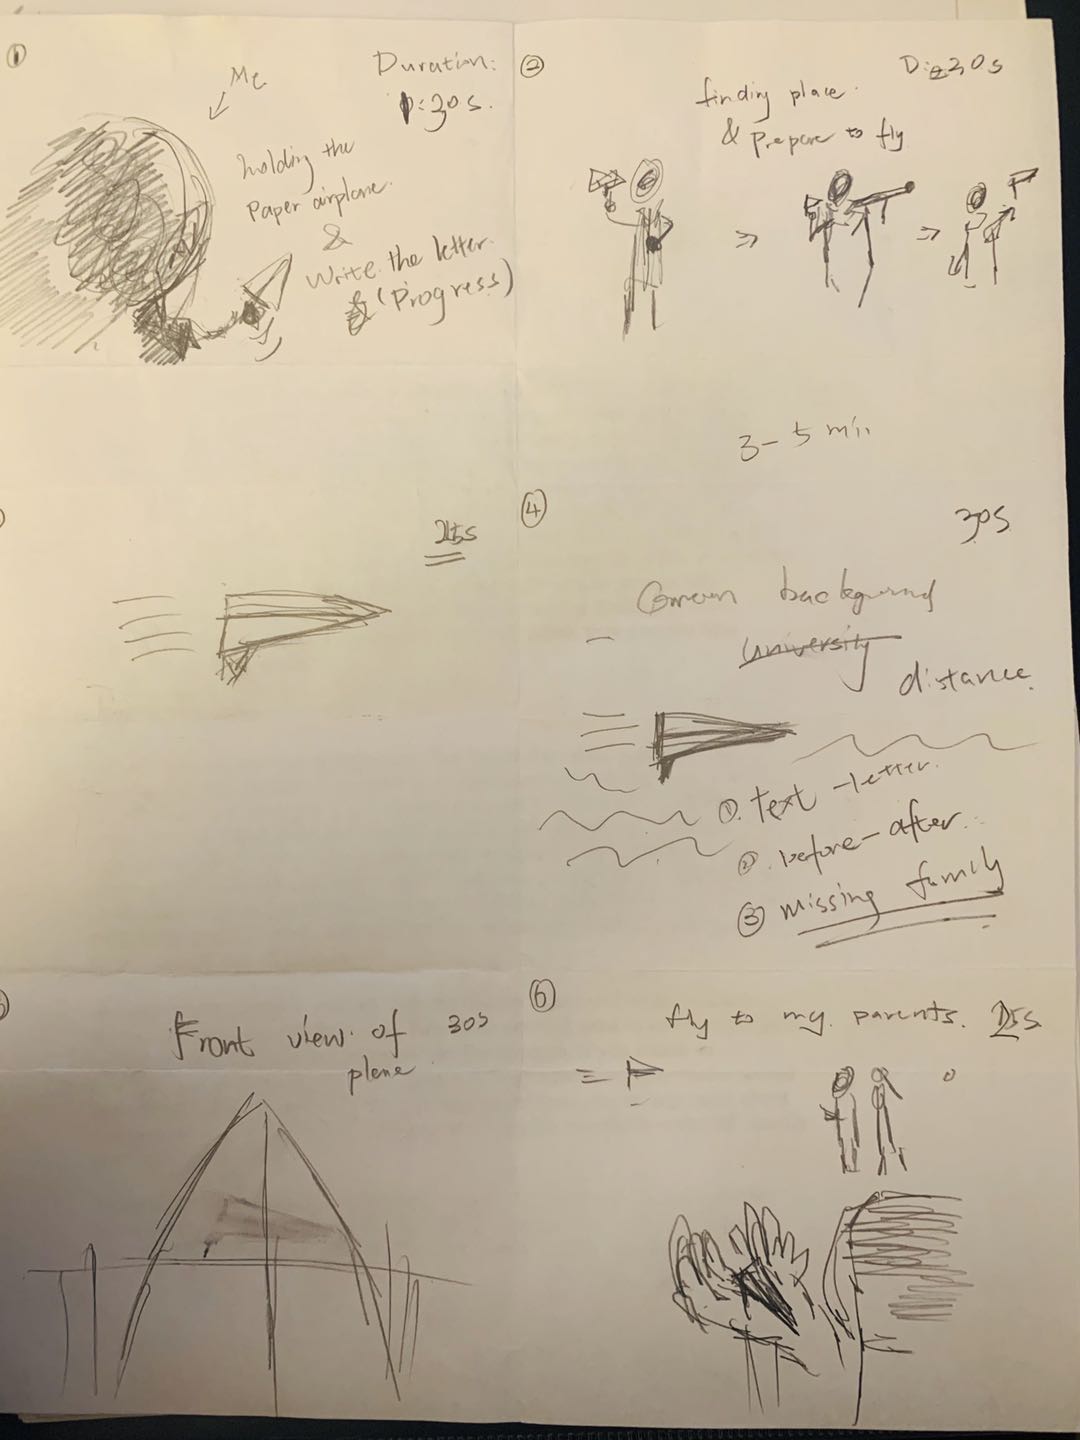 ①
Me
Duration:
D:30s.
holding the
Paper airplane.
&
Write the letter.
& (Progress)
②
D: 30s
finding place.
& Prepare to fly
3-5 min
25s
④
30s
background
university
distance.
①. text - letter.
②. before-after.
③ missing family
Front view of
plane
30s
⑥
fly to my parents. 25s